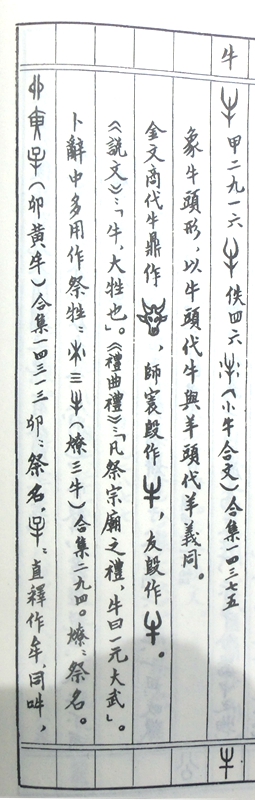 牛
甲二九一六 佚四六 (小牛合文)合集一四三七五
象牛頭形,以牛頭代牛與羊頭代羊義同。
金文商代牛鼎作 ,師寰𣪘作 ,友𣪘作 。
《說文》:「牛,大牲也」。《禮曲禮》:「凡祭宗廟之禮,牛曰一元大武」。
卜辭中多用作祭牲: 三 (燎三牛)合集二九四。燎:祭名。
(卯黃牟)合集一四三一三 卯:祭名, :直釋作牟,同吽,